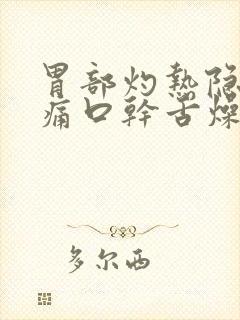 胃部灼热隐
痛口幹舌燥
多尔西